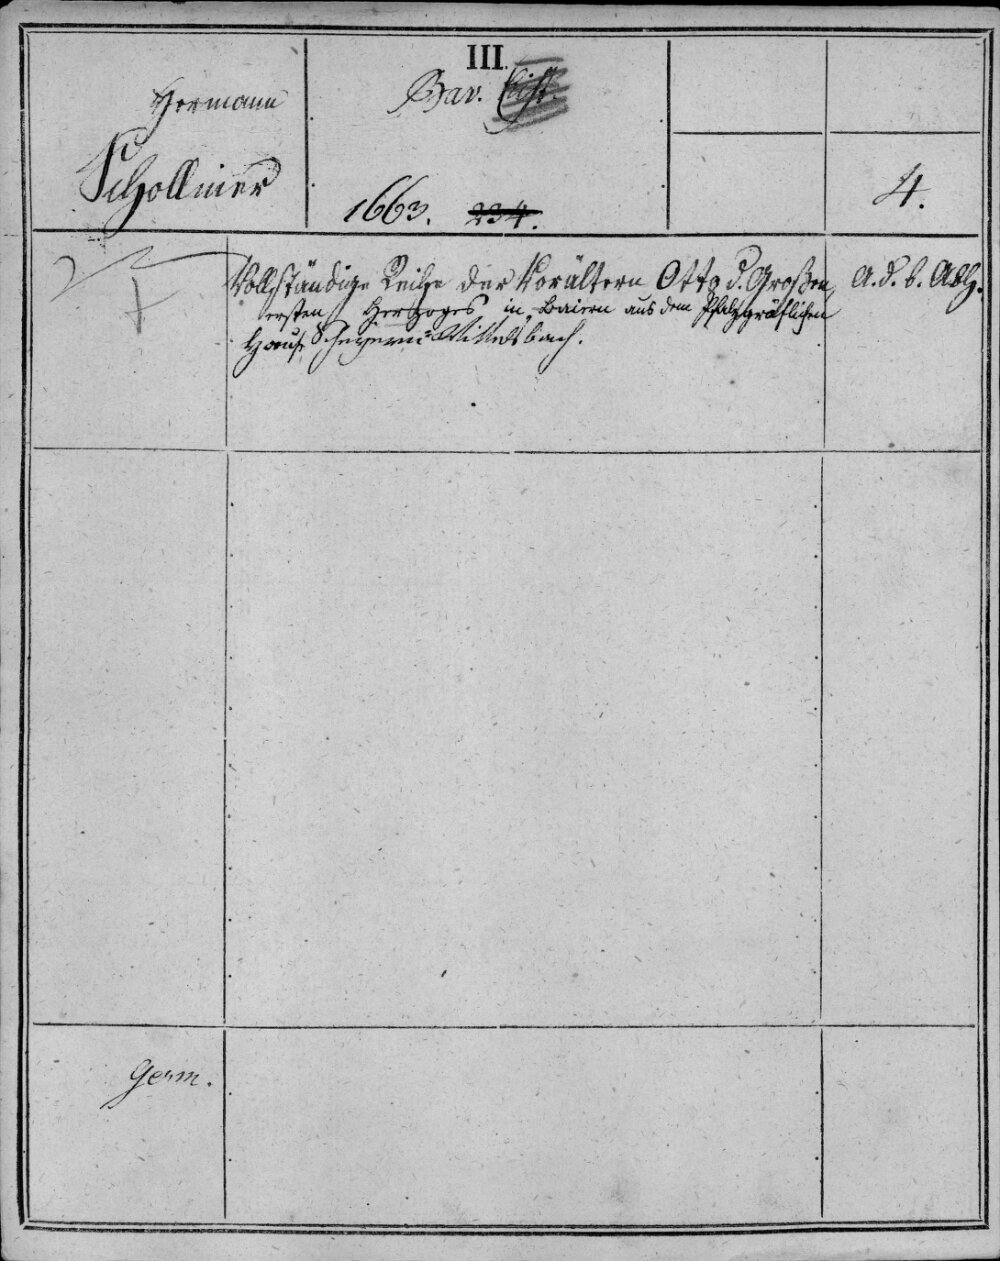 III.
Hermann
Bav. Hist.
Scholliner
1663. 234.
4.
Vollständige Reihe der Vorältern Otto d. Großen,
ersten Herzoges in Baiern aus dem Pfalzgräflichen
Hause Scheyern-Wittelsbach.
A. d. b. Abh.
Germ.